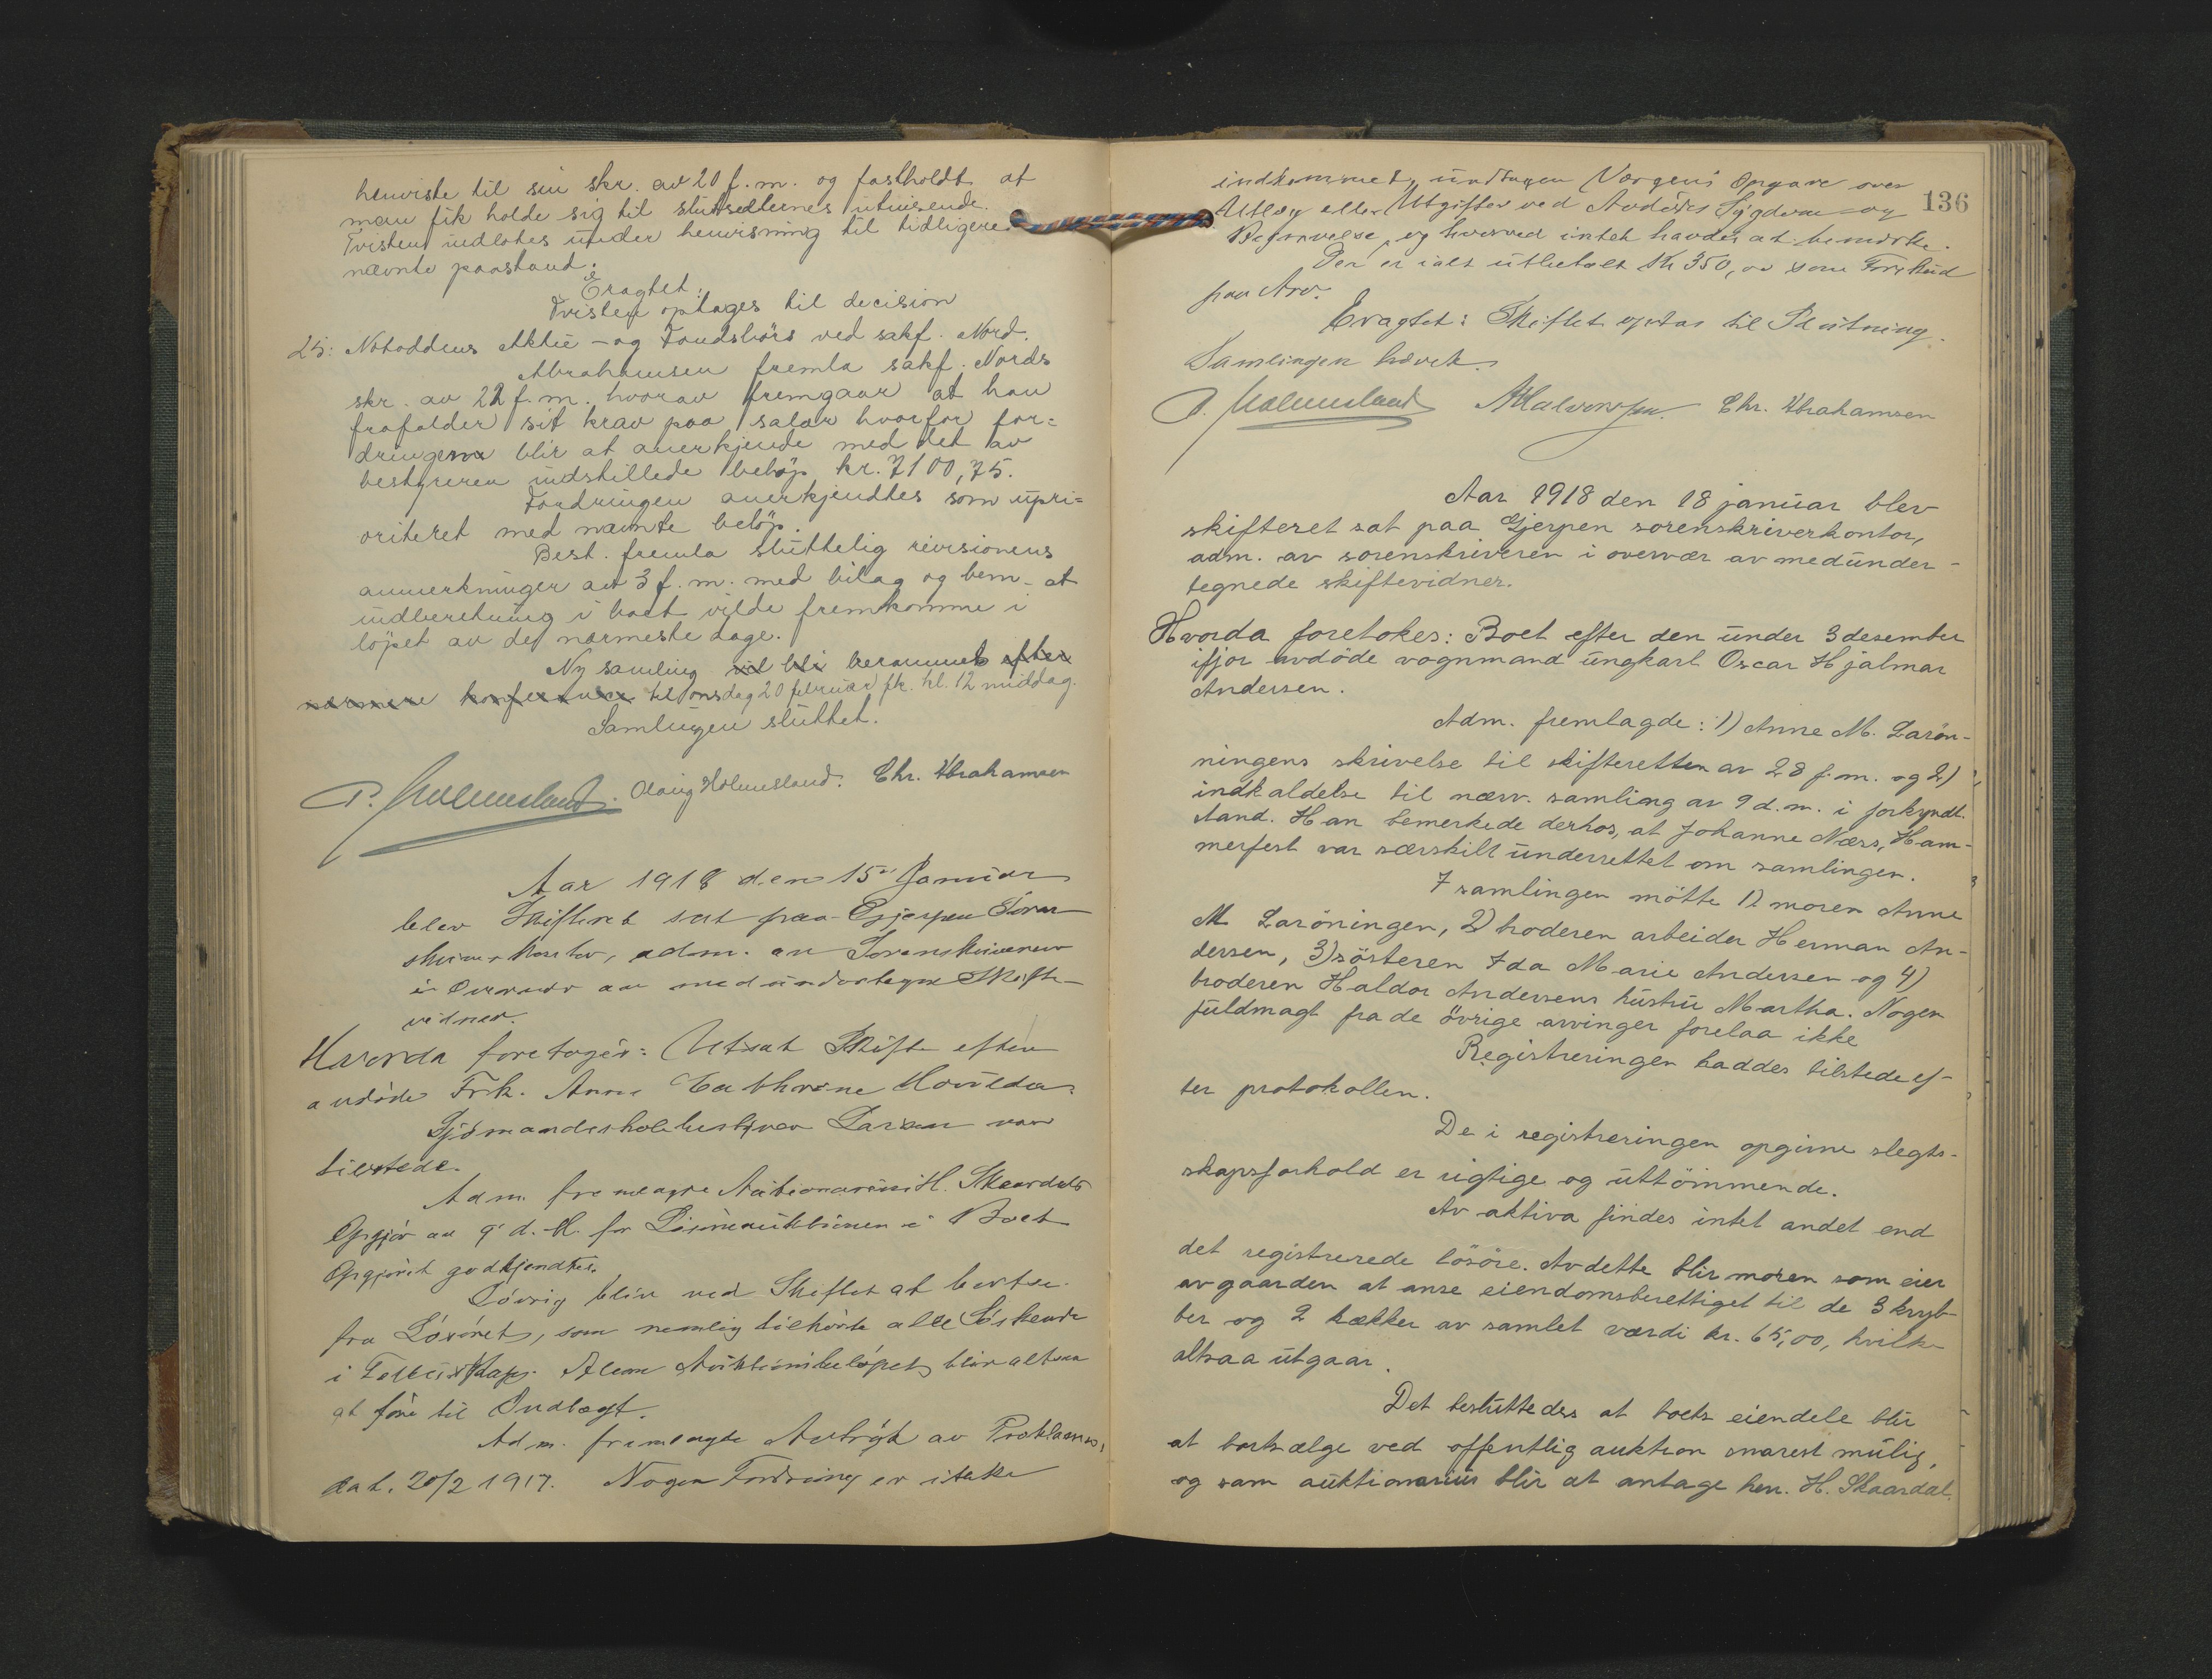 henviste til sin skr. av 20 f.m. og fastholdt at
man fik holde sig til slutsedlernes utvisende.
Tvisten indlotes under henvisning til tidligere
nævnte paastand.
Eragtet:
Tvisten optages til decision
25: Notoddens Aktie- og Fondsbörs ved sakf. Nord.
Abrahamsen fremla sakf. Nords
skr. av 22 f.m. hvorav fremgaar at han
frafalder sit krav paa salær hvorfor for=
dringerne blir at anerkjende med det av
bestyreren indstillede belöp kr. 7100,75.
Fordringen anerkjendtes som upri=
oritert med nævnte belöp.
Best. fremla sluttelig revisionens
anmerkninger av 3 f.m. med bilag og bem. at
indberetning i boet vilde fremkomme i
löpet av de nærmeste dage.
Ny samling vil bli berammet efter
nærmere konferanse til onsdag 20 februar fk. kl. 12 middag.
Samlingen sluttet.
P. Holmesland. Aslaug Holmesland. Chr. Abrahamsen
Aar 1918 den 15de Januar
blev Skifteret sat paa Gjerpen Soren-
skriverkontor, adm. av Sorenskriveren
i Overvær av medundertegn Skifte-
vidner.
Hvorda foretoges: Utsat Skifte efter
avdöde Frk. Anne Cathrine Houlder
Sjömandsskolebestyrer Larsen var
tilstede.
Adm. fremlagde Auktionarius H. Skaardals
Opgjör av 9' d.M. for Lösöreauktionen i Boet
Opgjöret godkjendtes.
Iövrig blir ved Skiftet at bortse
fra Lösöret, som nemlig tilhörte alle Söskende
i Fællesskap. Alene Auktionsbelöpet blir altsaa
at före til Indtægt.
Adm. fremlagde Avtryk av Proklama,
dat. 20/2 1917. Nogen Fordring er ikke
136
indkommet, undtagen Værgens Opgave over
Utlæg eller Utgifter ved Avdödes Sygdom og
Begravelse, og hvorved intet havdes at bemerke.
Der er ialt utbetalt Kr 350,00 som Forskud
paa Arv.
Eragtet: Skiftet optas til Slutning.
Samlingen hævet.
P. Holmesland A Halvorsen. Chr. Abrahamsen
Aar 1918 den 18 januar blev
skifteret sat paa Gjerpen sorenskriverkontor,
adm. av sorenskriveren i overvær av medunder-
tegnede skiftevidner.
Hvorda foretokes: Boet efter den under 3 desember
ifjor avdöde vognmand ungkarl Oscar Hjalmar
Andersen.
Adm. fremlagde: 1) Anne M. Larön-
ningens skrivelse til skifteretten av 28 f.m. og 2)
indkaldelse til nærv. samling av 9 d.m. i forkyndt
stand. Han bemerkede derhos, at Johanne Næss, Ham-
merfest var særskilt underrettet om samlingen.
I samlingen mötte 1) moren Anne
M Laröningen, 2) broderen arbeider Herman An-
dersen, 3) sösteren Ida Marie Andersen og 4)
broderen Haldor Andersens hustru Martha. Nogen
fuldmagt fra de övrige arvinger forelaa ikke
Registreringen haddes tilstede ef-
ter protokollen.
De i registreringen opgivne slegts-
skapsforhold er rigtige og uttömmende.
Av aktiva findes intet andet end
det registrerede lösöre. Av dette blir moren som eier
av gaarden at anse eiendomsberettiget til de 3 kryb-
ber og 2 hækker av samlet værdi kr. 65,00, hvilke
altsaa utgaar.
Det besluttedes at boets eiendele blir
at bortsælge ved offentlig auktion snarest mulig,
og som auktionarius blir at antage hr. H. Skaardal.